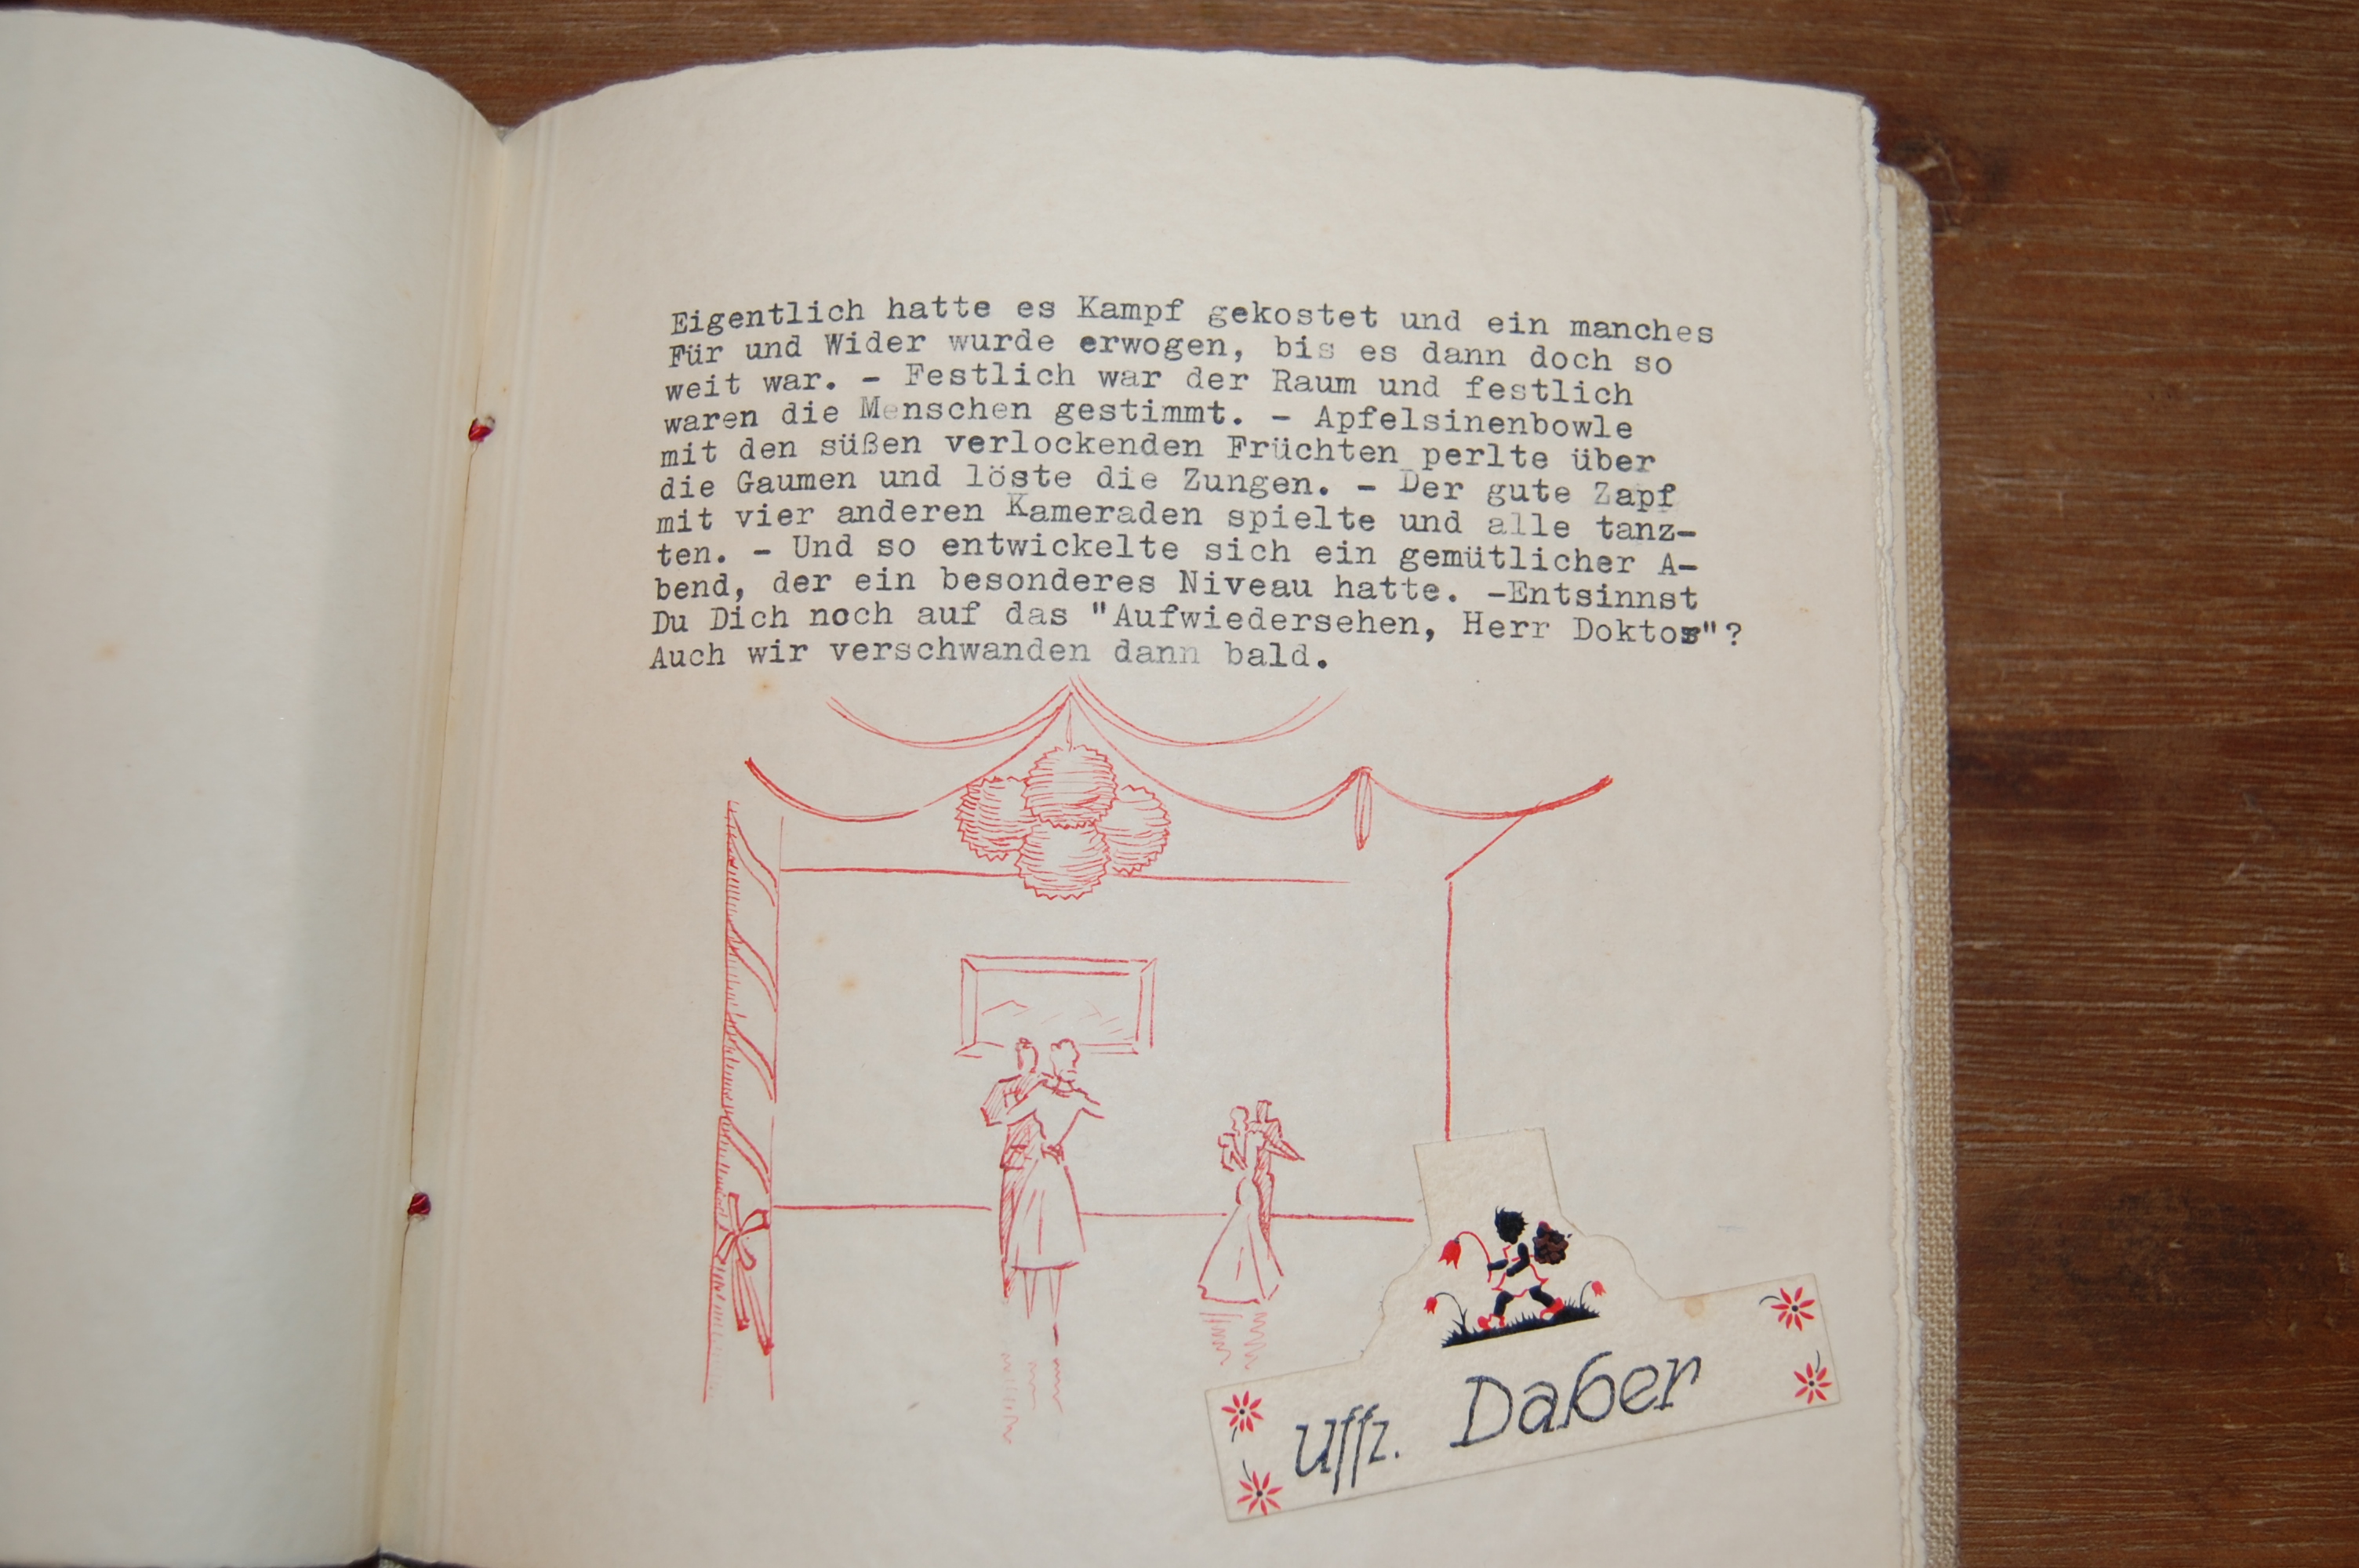 Eigentlich hatte es Kampf gekostet und ein manches
Für und Wider wurde erwogen, bis es dann doch so
weit war. - Festlich war der Raum und festlich
waren die Menschen gestimmt. - Apfelsinenbowle
mit den süßen verlockenden Früchten perlte über
die Gaumen und löste die Zungen. - Der gute Zapf
mit vier anderen Kameraden spielte und alle tanz-
ten. - Und so entwickelte sich ein gemütlicher A-
bend, der ein besonderes Niveau hatte. -Entsinnst
Du Dich noch auf das "Aufwiedersehen, Herr Doktor"?
Auch wir verschwanden dann bald.
Uffz. Daber